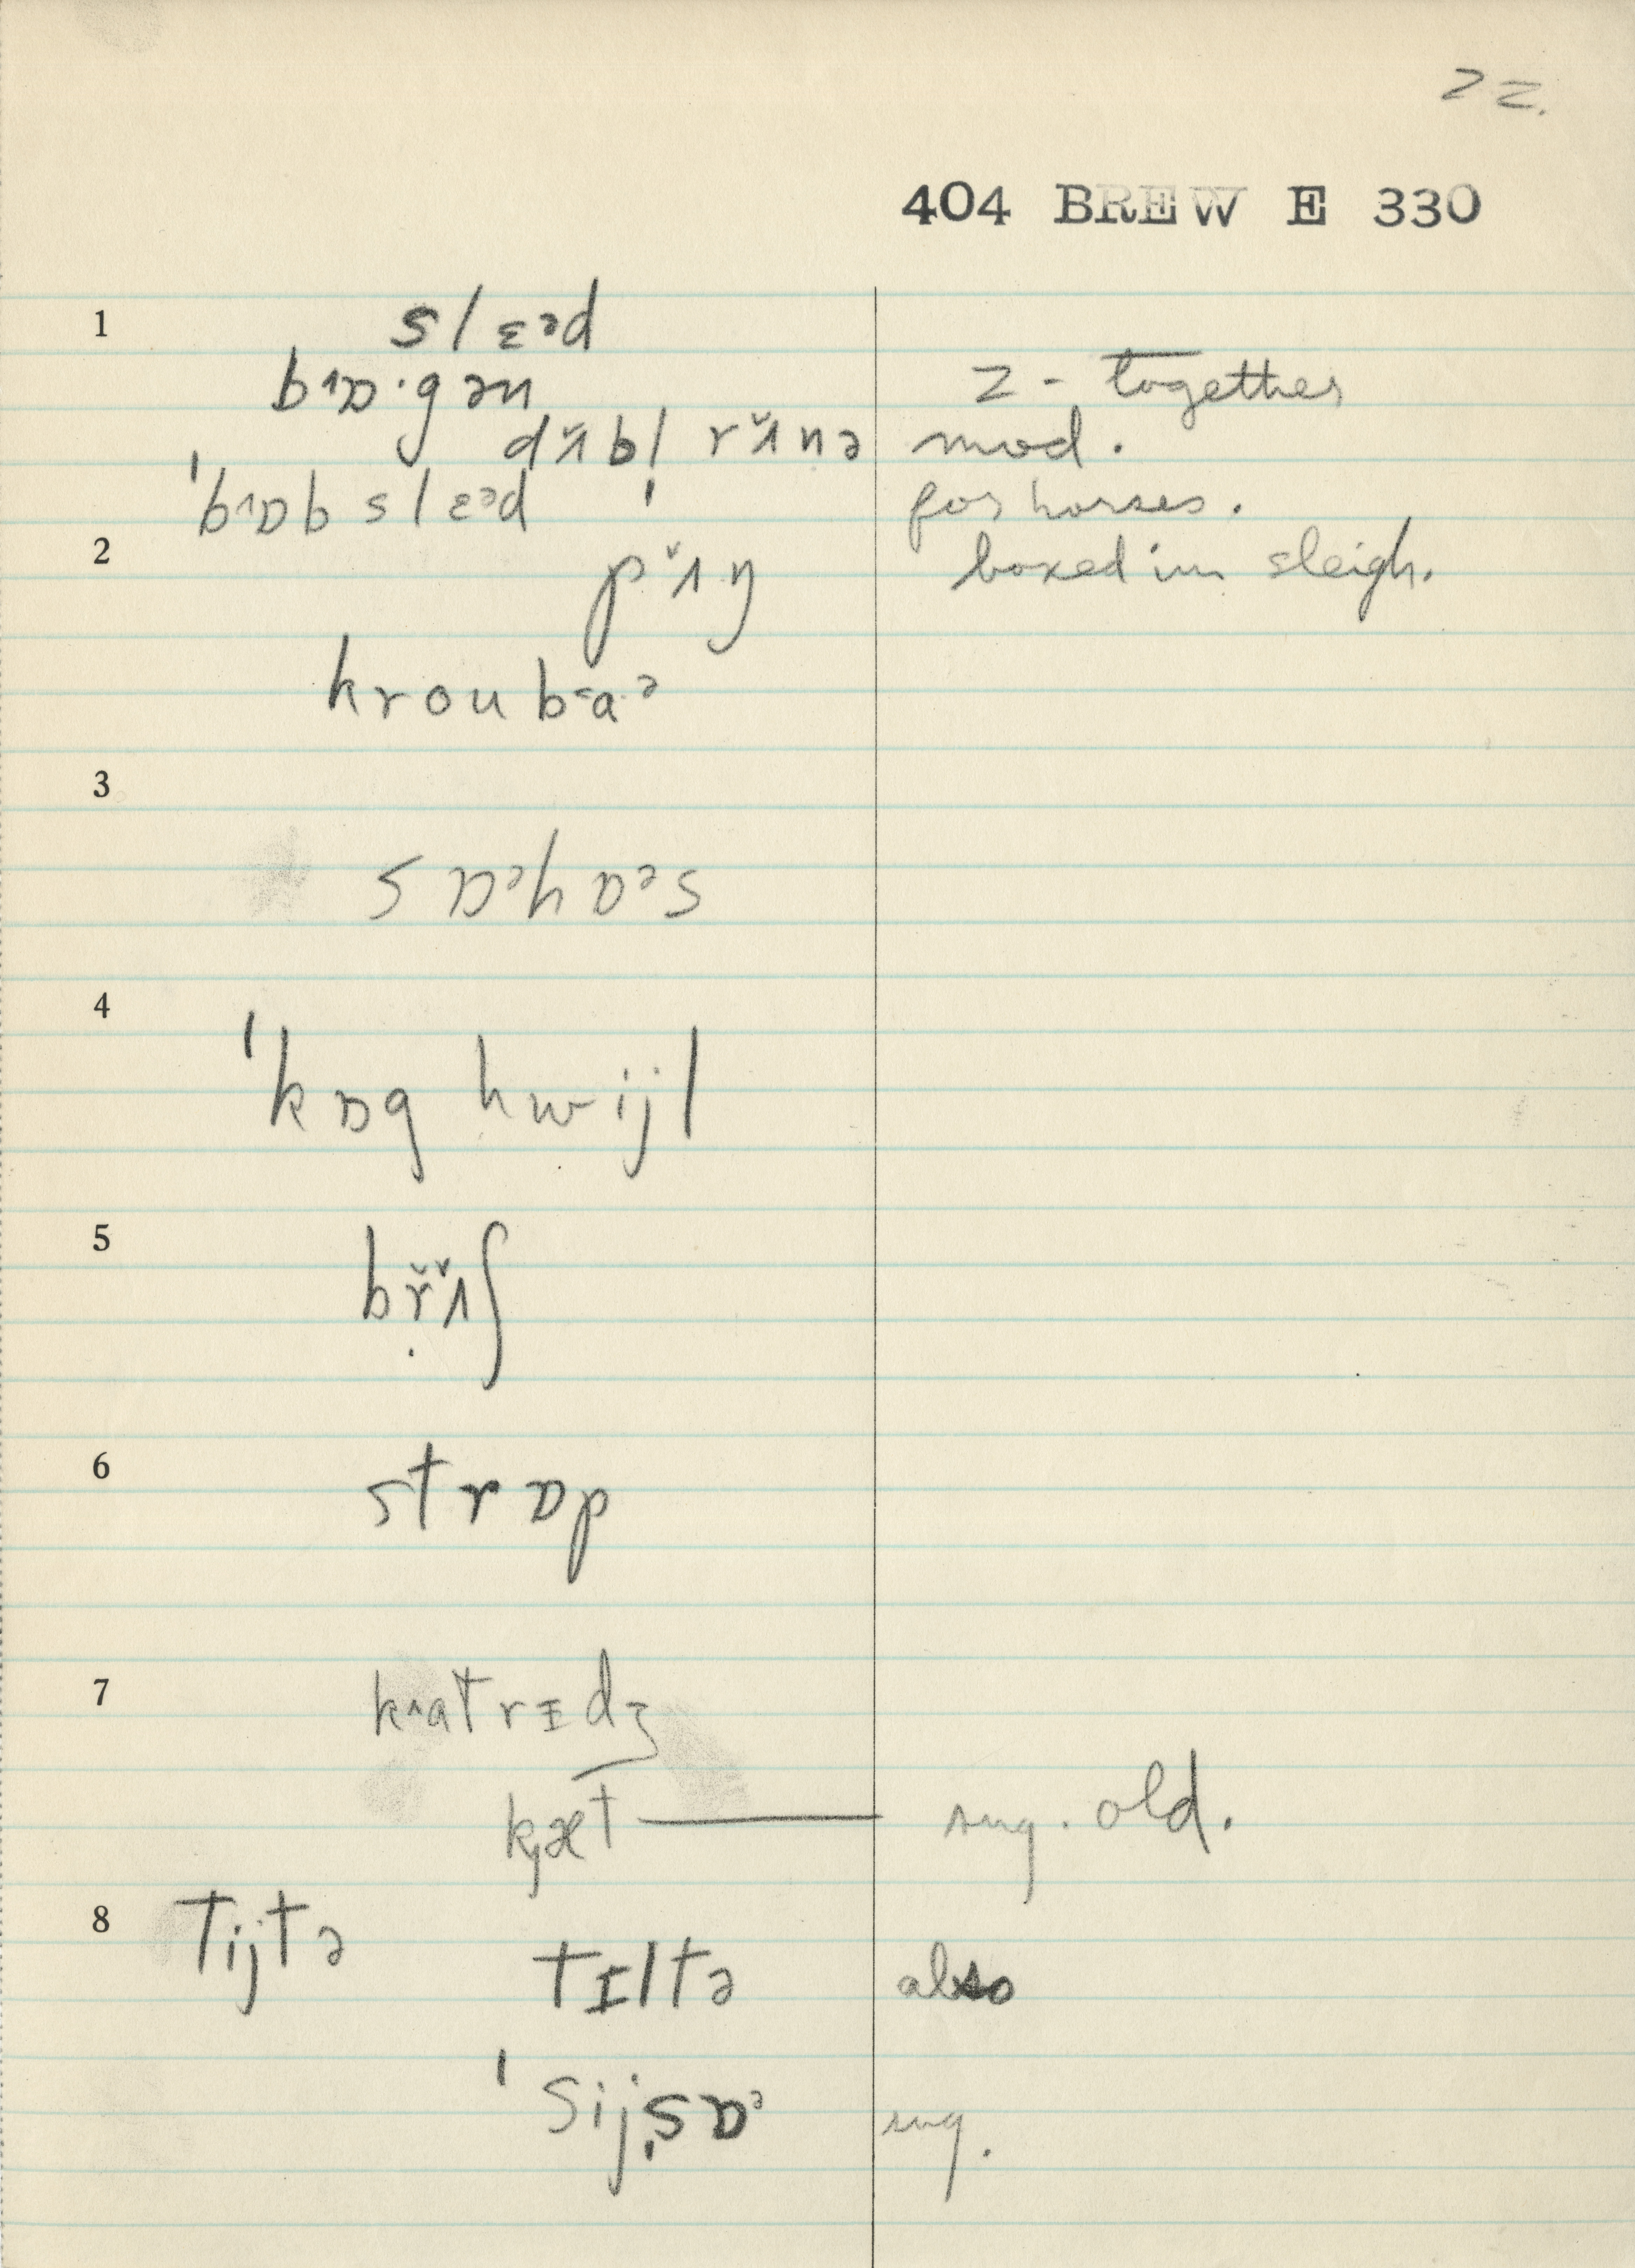 22.
404 BREW E 330
1 slɛᵊd
bᶦɒ·gən 2 - together
dʌ̌bl rʌ̌nə mod.
ˈbᶦɒb slɛᵊd for horses.
2 pʌ̌ŋ boxed in sleigh.
kroubaˑᵊ
3
sɒᵊhɒᵊs
4
ˈkɒg hwijl
5 bṛ̌ʌ̌ʃ
6 strɒp
7 k^atrɪdʒ
kʝæt sug. old.
8 tijtə
tɪltə also
ˈsijsɒᵊ sug.